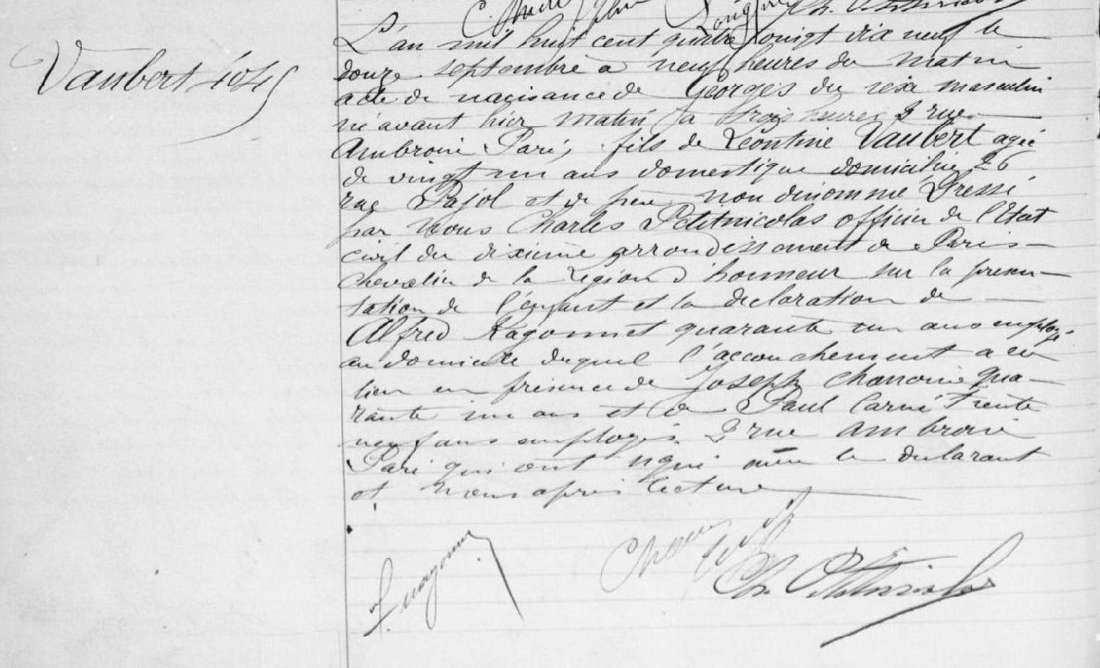 Vaubert 4045
L'an mil huit cent quatre vingt dix neuf le
douze septembre à neuf heures du matin
acte de naissance de Georges du sexe masculin
né avant hier matin à trois heures 2 rue
Ambroise Paré, fils de Léontine Vaubert agée
de vingt un ans domestique domiciliée 26
rue Pajol et de père non dénommé Dressé
par Nous Charles Petitnicolas officier de l'Etat
civil du dixième arrondissement de Paris
chevalier de la Légion d'honneur sur la présen-
tation de l'enfant et la déclaration de
Alfred Ragonnet quarante un ans employé
au domicile duquel l'accouchement a eu
lieu en présence de Joseph Chanoine qua-
rante un ans et de Paul Carné trente
neuf ans employés 2 rue Ambroise
Paré qui ont signé avec le déclarant
et Nous après lecture
Ch. Petitnicolas